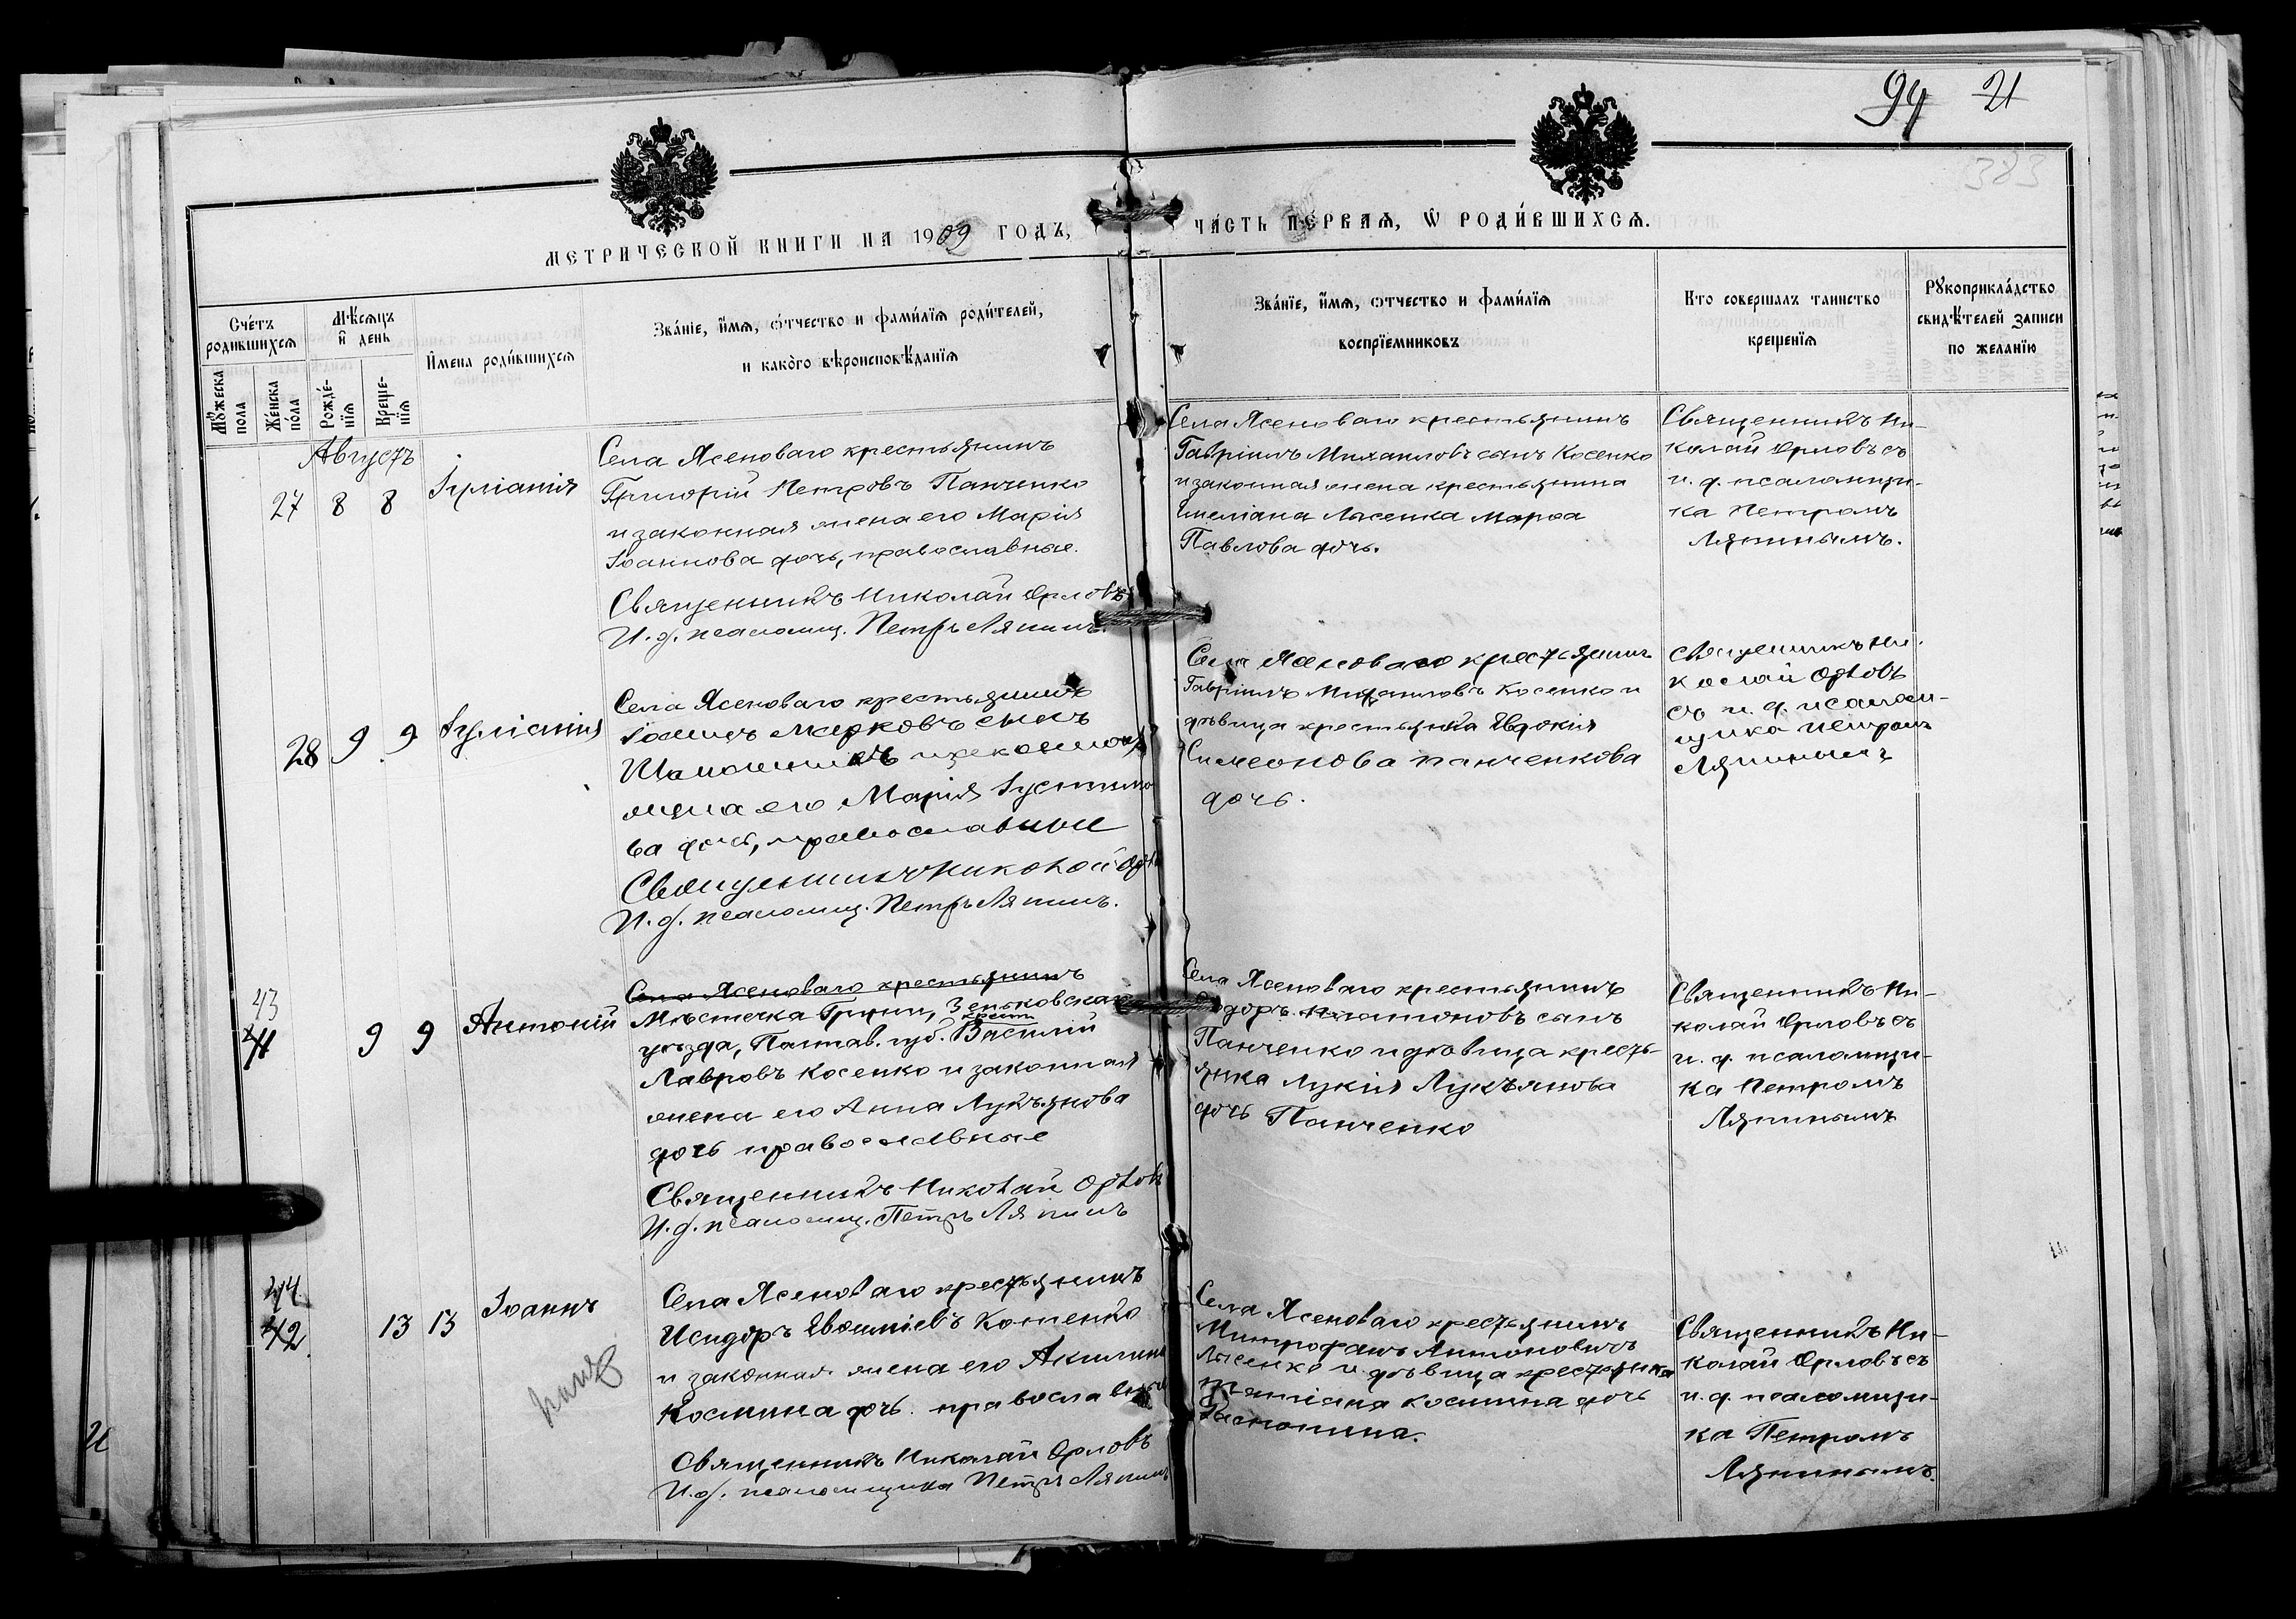 94 21
383
МЕТРИЧЕСКОЙ КНИГИ НА 1909 ГОДЪ,
ЧА́СТЬ ПЕ́РВАЯ, Ѡ҆ РОДИ́ВШИХСЯ.
Сче́тъ родившихся
Мꙋ́жеска пола
Же́нска по́ла
Мѣ́сяцъ и҆ день
Рожде́нїя
Креще́нїя
И҆мена роди́вшихся
Зва́нїе, и҆́мя, ѻ҆́тчество и фами́лїя роди́телей,
и како́го вѣроисповѣ́данїя
Зва́нїе, и҆́мя, ѻ҆тчество и фами́лїя
воспрїемниковъ
Кто совершалъ таинство
креще́нїя
Рꙋкоприкла́дство
свидѣ́телей записи
по желанїю
Августъ
27 8 8 Іуліанія
Села Ясеноваго крестьянинъ
Григорій Петровъ Панченко
и законная жена его Марія
Іоаннова дочь, православные.
Священникъ Николай Орловъ
И. д. псаломщ. Петръ Ляпинъ.
Села Ясеноваго крестьянинъ
Гавріилъ Михаиловъ сынъ Косенко
и законная жена крестьянина
Емеліана Лысенка Марѳа
Павлова дочь.
Священникъ Ни-
колай Орловъ съ
и. д. псаломщи-
ка Петромъ
Ляпинымъ.
28 9 9 Іуліанія
Села Ясеноваго крестьянинъ
Іоаннъ Марковъ сынъ
и законная
жена его Марія Іустино
ва дочь, православные
Священникъ Николай Орло
И. д. псаломщ. Петръ Ляпинъ.
Села Ясеноваго крестьянинъ
Гавріилъ Михаиловъ Косенко и
дѣвица крестьянка Евдокія
Симеонова Панченкова
дочь.
Священникъ Ни-
колай Орловъ
съ и. д. псалом-
щика Петромъ
Ляпинымъ
43
41 9 9 Антоній
Села Ясеноваго крестьянинъ
Мѣстечка Груни, Зеньковскаго
крест.
уѣзда, Полтав. губ. Василій
Лавровъ Косенко и законная
жена его Анна Лукьянова
дочь православные
Священникъ Николай Орлов
И. д. псаломщ. Петръ Ляпинъ
Села Ясеноваго крестьянинъ
сынъ
Панченко и дѣвица кресть-
янка Лукія Лукьянова
дочь Панченко
Священникъ Ни-
колай Орловъ съ
и. д. псаломщи-
ка Петромъ
Ляпинымъ
44
42 13 13 Іоаннъ
Села Ясеноваго крестьянинъ
Исидоръ Котенко
и законная жена его Акилина
Космина дочь. православные
Священникъ Николай Орловъ
И. д. псаломщика Петръ Ляпинъ
Села Ясеноваго крестьянинъ
Митрофанъ Антоновичъ
Лысенко и дѣвица крестьянка
Татіана Космина дочь
Священникъ Ни-
колай Орловъ съ
и. д. псаломщи-
ка Петромъ
Ляпинымъ.